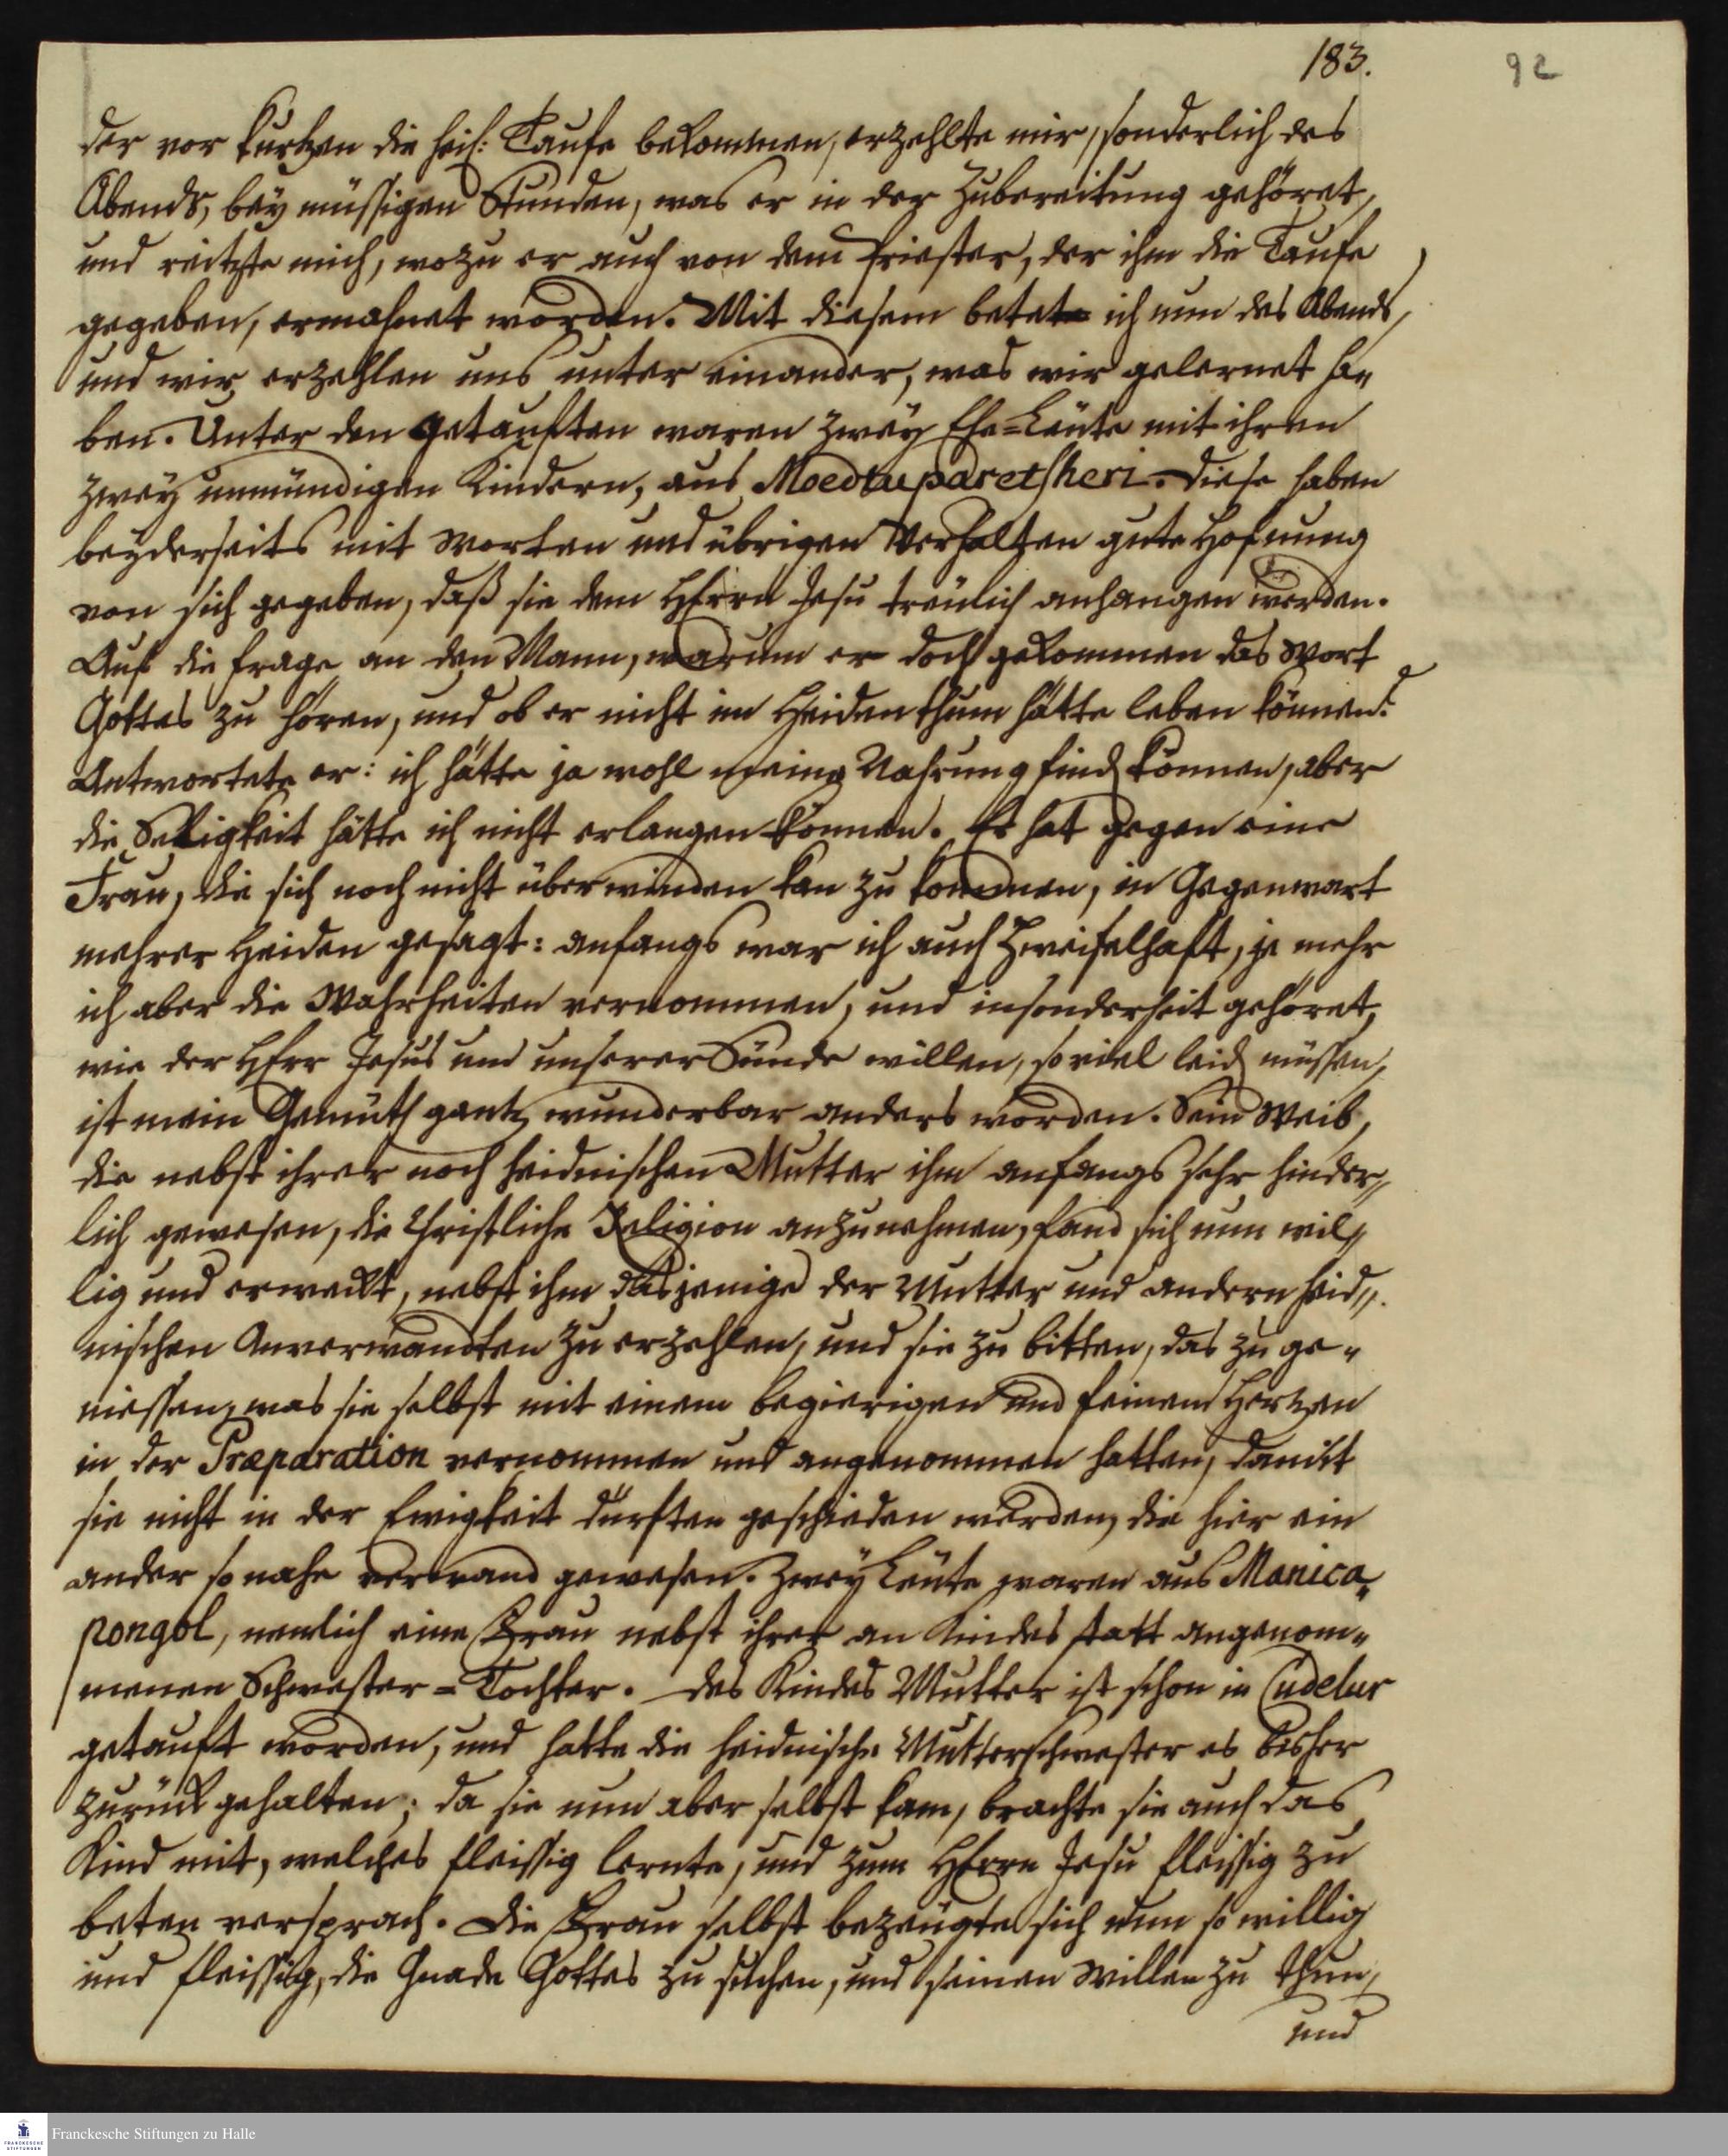 183.
92
der vor kurtzen die heil: Taufe bekommen, erzehlte mir, sonderlich des
Abends, bey müssigen Stunden, was er in der Zubereitung gehöret,
und reitzte mich, wozu er auch von dem Priester, der ihm die Taufe
gegeben, ermahnet worden. Mit diesem betete ich nun des Abends,
und wir erzehlen uns unter einander, was wir gelernet ha„
ben. Unter den getauften waren zwey Ehe-Leute mit ihren
zwey unmündigen Kindern, aus Moeduparetsheri. Diese haben
beyderseits mit Worten und übrigen Verhalten gute Hofnung
von sich gegeben, daß sie dem HErrn Jesu treulich anhangen werden.
Auf die Frage an den Mann, warum er doch gekommen das Wort
Gottes zu hören, und ob er nicht im Heidenthum hätte leben können?
Antwortete er: ich hätte ja wohl meine Nahrung find können, aber
die Seligkeit hätte ich nicht erlangen können. Er hat gegen eine
Frau, die sich noch nicht überwinden kan zu kommen, in Gegenwart
mehrer Heiden gesagt: anfangs war ich auch Zweifelhaft, je mehr
ich aber die Wahrheiten vernommen, und insonderheit gehöret,
wie der HErr Jesus um unserer Sünde willen, so viel leid müssen,
ist mein Gemüth gantz wunderbar anders worden. Sein Weib,
die nebst ihrer noch heidnischen Mutter ihm anfangs sehr hinder„
lich gewesen, die Christliche Religion anzunehmen, fand sich nun wil„
lig und erweckt, nebst ihm dasjenige der Mutter und andern heid„
nischen Anverwandten zu erzehlen, und sie zu bitten, das zu ge„
niessen, was sie selbst mit einem begierigen und feinem Hertzen
in der Præparation vernommen und angenommen hatten, damit
sie nicht in der Ewigkeit dürften geschieden werden, die hier ein
ander so nahe verwand gewesen. Zwey Leute waren aus Manica„
pongol, nemlich eine Frau nebst ihrer an Kindes statt angenom„
menen Schwester-Tochter. Des Kindes Mutter ist schon in Cudelur
getauft worden, und hatte die heidnische Mutterschwester es bisher
zurück gehalten; da sie nun aber selbst kam, brachte sie auch das
Kind mit, welches fleissig lernte, und zum HErrn Jesu fleissig zu
beten versprach. Die Frau selbst bezeugte sich nun so willig
und fleissig, die Gnade Gottes zu suchen, und seinen Willen zu thun,
und
FRANCKESCHE STIFTUNGEN
Franckesche Stiftungen zu Halle